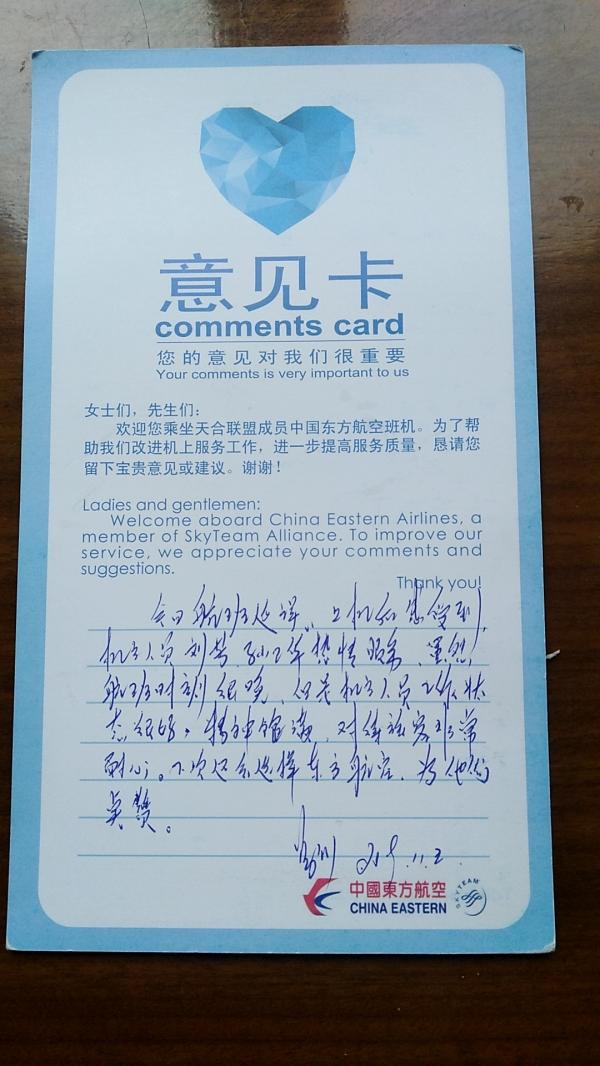 意见卡
comments card
您的意见对我们很重要
Your comments is very important to us
女士们，先生们：
欢迎您乘坐天合联盟成员中国东方航空班机。为了帮
助我们改进机上服务工作，进一步提高服务质量，恳请您
留下宝贵意见或建议。谢谢！
Ladies and gentlemen:
Welcome aboard China Eastern Airlines, a
member of SkyTeam Alliance. To improve our
service, we appreciate your comments and
suggestions.
Thank you!
今日航班延误，上机后感受到
机上人员刘 孙 华热情服务，虽然
航班时刻很晚，但是机上人员工作状
态很好。精神饱满，对待旅客非常
耐心。下次还会选择东方航空，为他们
点赞。
11.2
中國東方航空
CHINA EASTERN
SKYTEAM